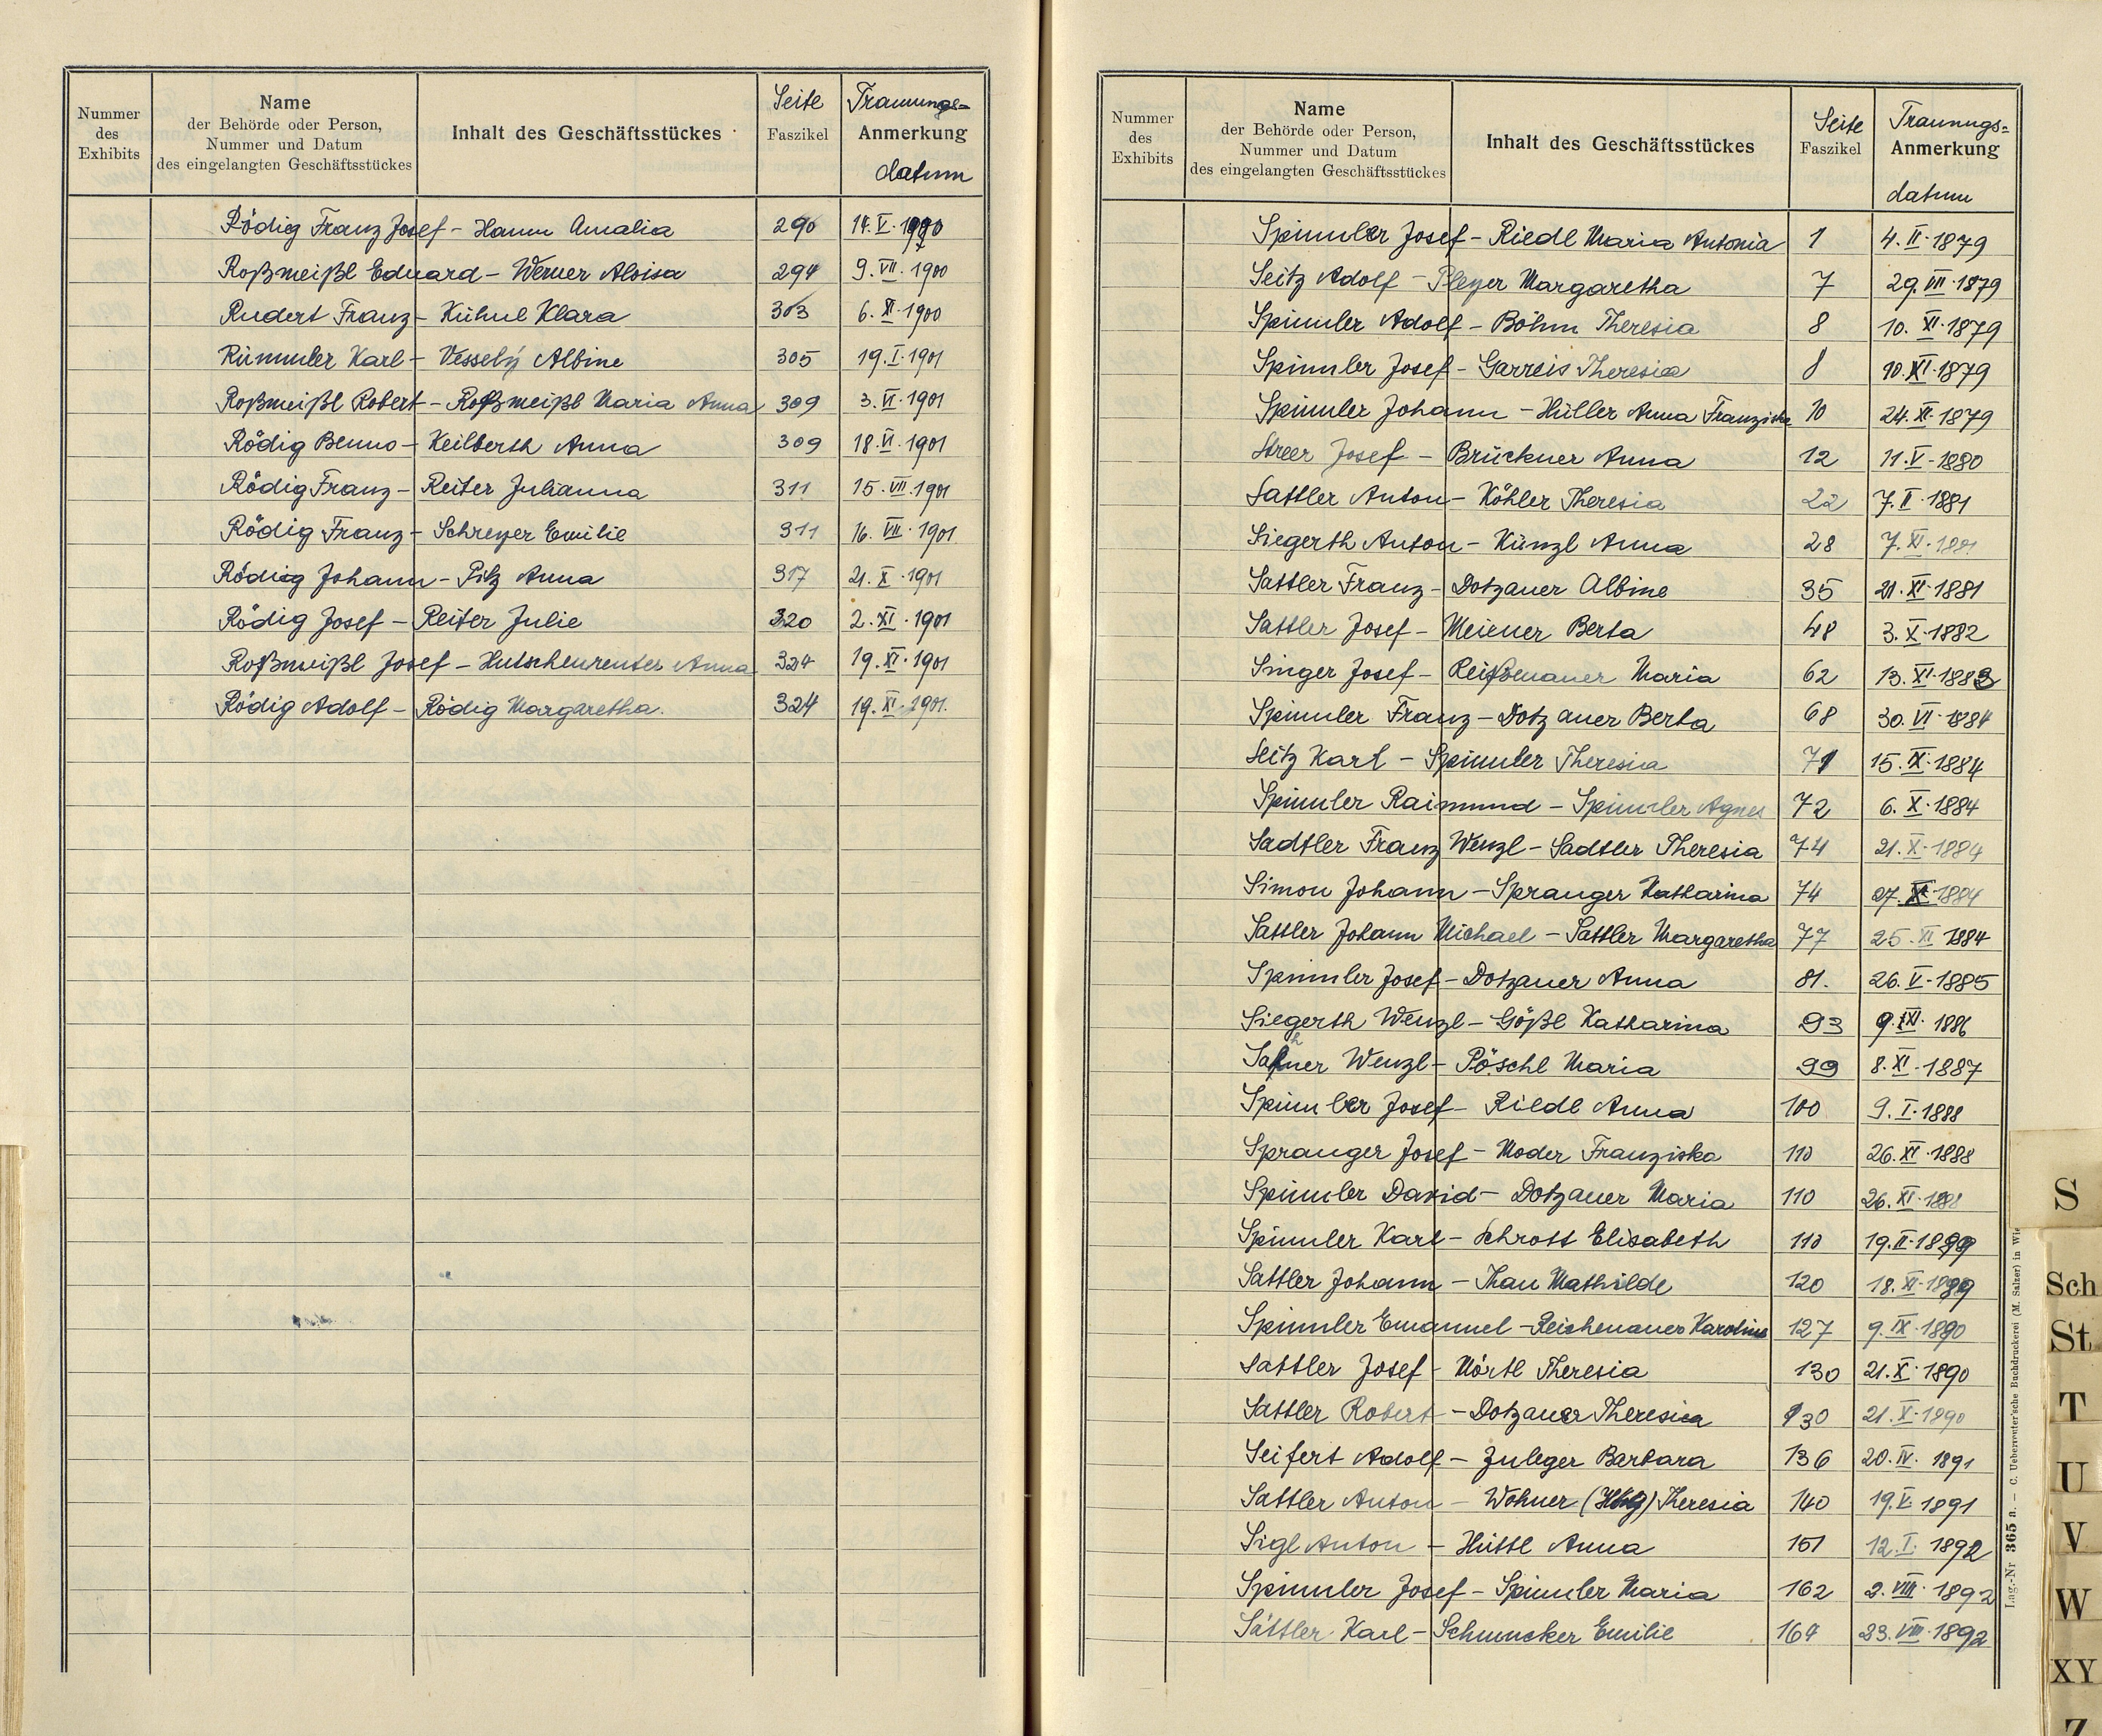 Nummer des Exhibits | Name der Behörde oder Person, Nummer und Datum des eingelangten Geschäftsstückes | Inhalt des Geschäftsstückes | Seite Faszikel | Trauungs= Anmerkung datum
Rödig Franz Josef - Hamm Amalia 290 14.V.1900
Roßmeißl Eduard - Werner Aloisa 294 9.VII.1900
Rudert Franz - Kühnl Klara 303 6.XI.1900
Rümmler Karl - Vesselý Albine 305 19.I.1901
Roßmeißl Robert - Roßmeißl Maria Anna 309 3.VI.1901
Rödig Benno - Keilberth Anna 309 18.VI.1901
Rödig Franz - Reiter Julianna 311 15.VII.1901
Rödig Franz - Schreyer Emilie 311 16.VII.1901
Rödig Johann - Pilz Anna 317 21.X.1901
Rödig Josef - Reiter Julie 320 2.XI.1901
Roßmeißl Josef - Hutschenreuter Anna 324 19.XI.1901
Rödig Adolf - Rödig Margaretha. 324 19.XI.1901.
Nummer des Exhibits | Name der Behörde oder Person, Nummer und Datum des eingelangten Geschäftsstückes | Inhalt des Geschäftsstückes | Seite Faszikel | Trauungs= Anmerkung datum
Spimmler Josef - Riedl Maria Antonia 1 4.II.1879
Seitz Adolf - Pleyer Margaretha 7 29.VII.1879
Spimmler Adolf - Böhm Theresia 8 10.XI.1879
Spimmler Josef - Garreis Theresia 8 10.XI.1879
Spimmler Johann - Hüller Anna Franziska 10 24.XI.1879
Streer Josef - Brückner Anna 12 11.V.1880
Sattler Anton - Köhler Theresia 22 7.II.1881
Siegerth Anton - Künzl Anna 28 7.XI.1881
Sattler Franz - Dotzauer Albine 35 21.XI.1881
Sattler Josef - Meiener Berta 48 3.X.1882
Singer Josef - Reißenauer Maria 62 13.XI.1883
Spimmler Franz - Dotzauer Berta 68 30.VI.1884
Seitz Karl - Spimmler Theresia 71 15.IX.1884
Spimmler Raimund - Spimmler Agnes 72 6.X.1884
Sadtler Franz Wenzl - Sadtler Theresia 74 21.X.1884
Simon Johann - Spranger Katharina 74 27.X.1884
Sattler Johann Michael - Sattler Margaretha 77 25.XI.1884
Spimmler Josef - Dotzauer Anna 81. 26.V.1885
Siegerth Wenzl - Gößl Katharina 93 9.XI.1886
Sahner Wenzl - Pöschl Maria 99 8.XI.1887
Spimmler Josef - Riedl Anna 100 9.I.1888
Spranger Josef - Moder Franziska 110 26.XI.1888
Spimmler David - Dotzauer Maria 110 26.XI.1888
Spimmler Karl - Schrott Elisabeth 110 19.II.1889
Sattler Johann - Thau Mathilde 120 18.XI.1889
Spimmler Emanuel - Reichenauer Karoline 127 9.IX.1890
Sattler Josef - Mörtl Theresia 130 21.X.1890
Sattler Robert - Dotzauer Theresia 130 21.X.1890
Seifert Adolf - Zuleger Barbara 136 20.IV.1891
Sattler Anton - Wohner Theresia 140 19.V.1891
Sigl Anton - Hüttl Anna 151 12.I.1892
Spimmler Josef - Spimmler Maria 162 2.VIII.1892
Sattler Karl - Schmucker Emilie 164 23.VIII.1892
Lag.-Nr 365 a. — C. Ueberreuter'sche Buchdruckerei (M. Salzer) in Wie
S
Sch
St
T
U
V
W
XY
Z